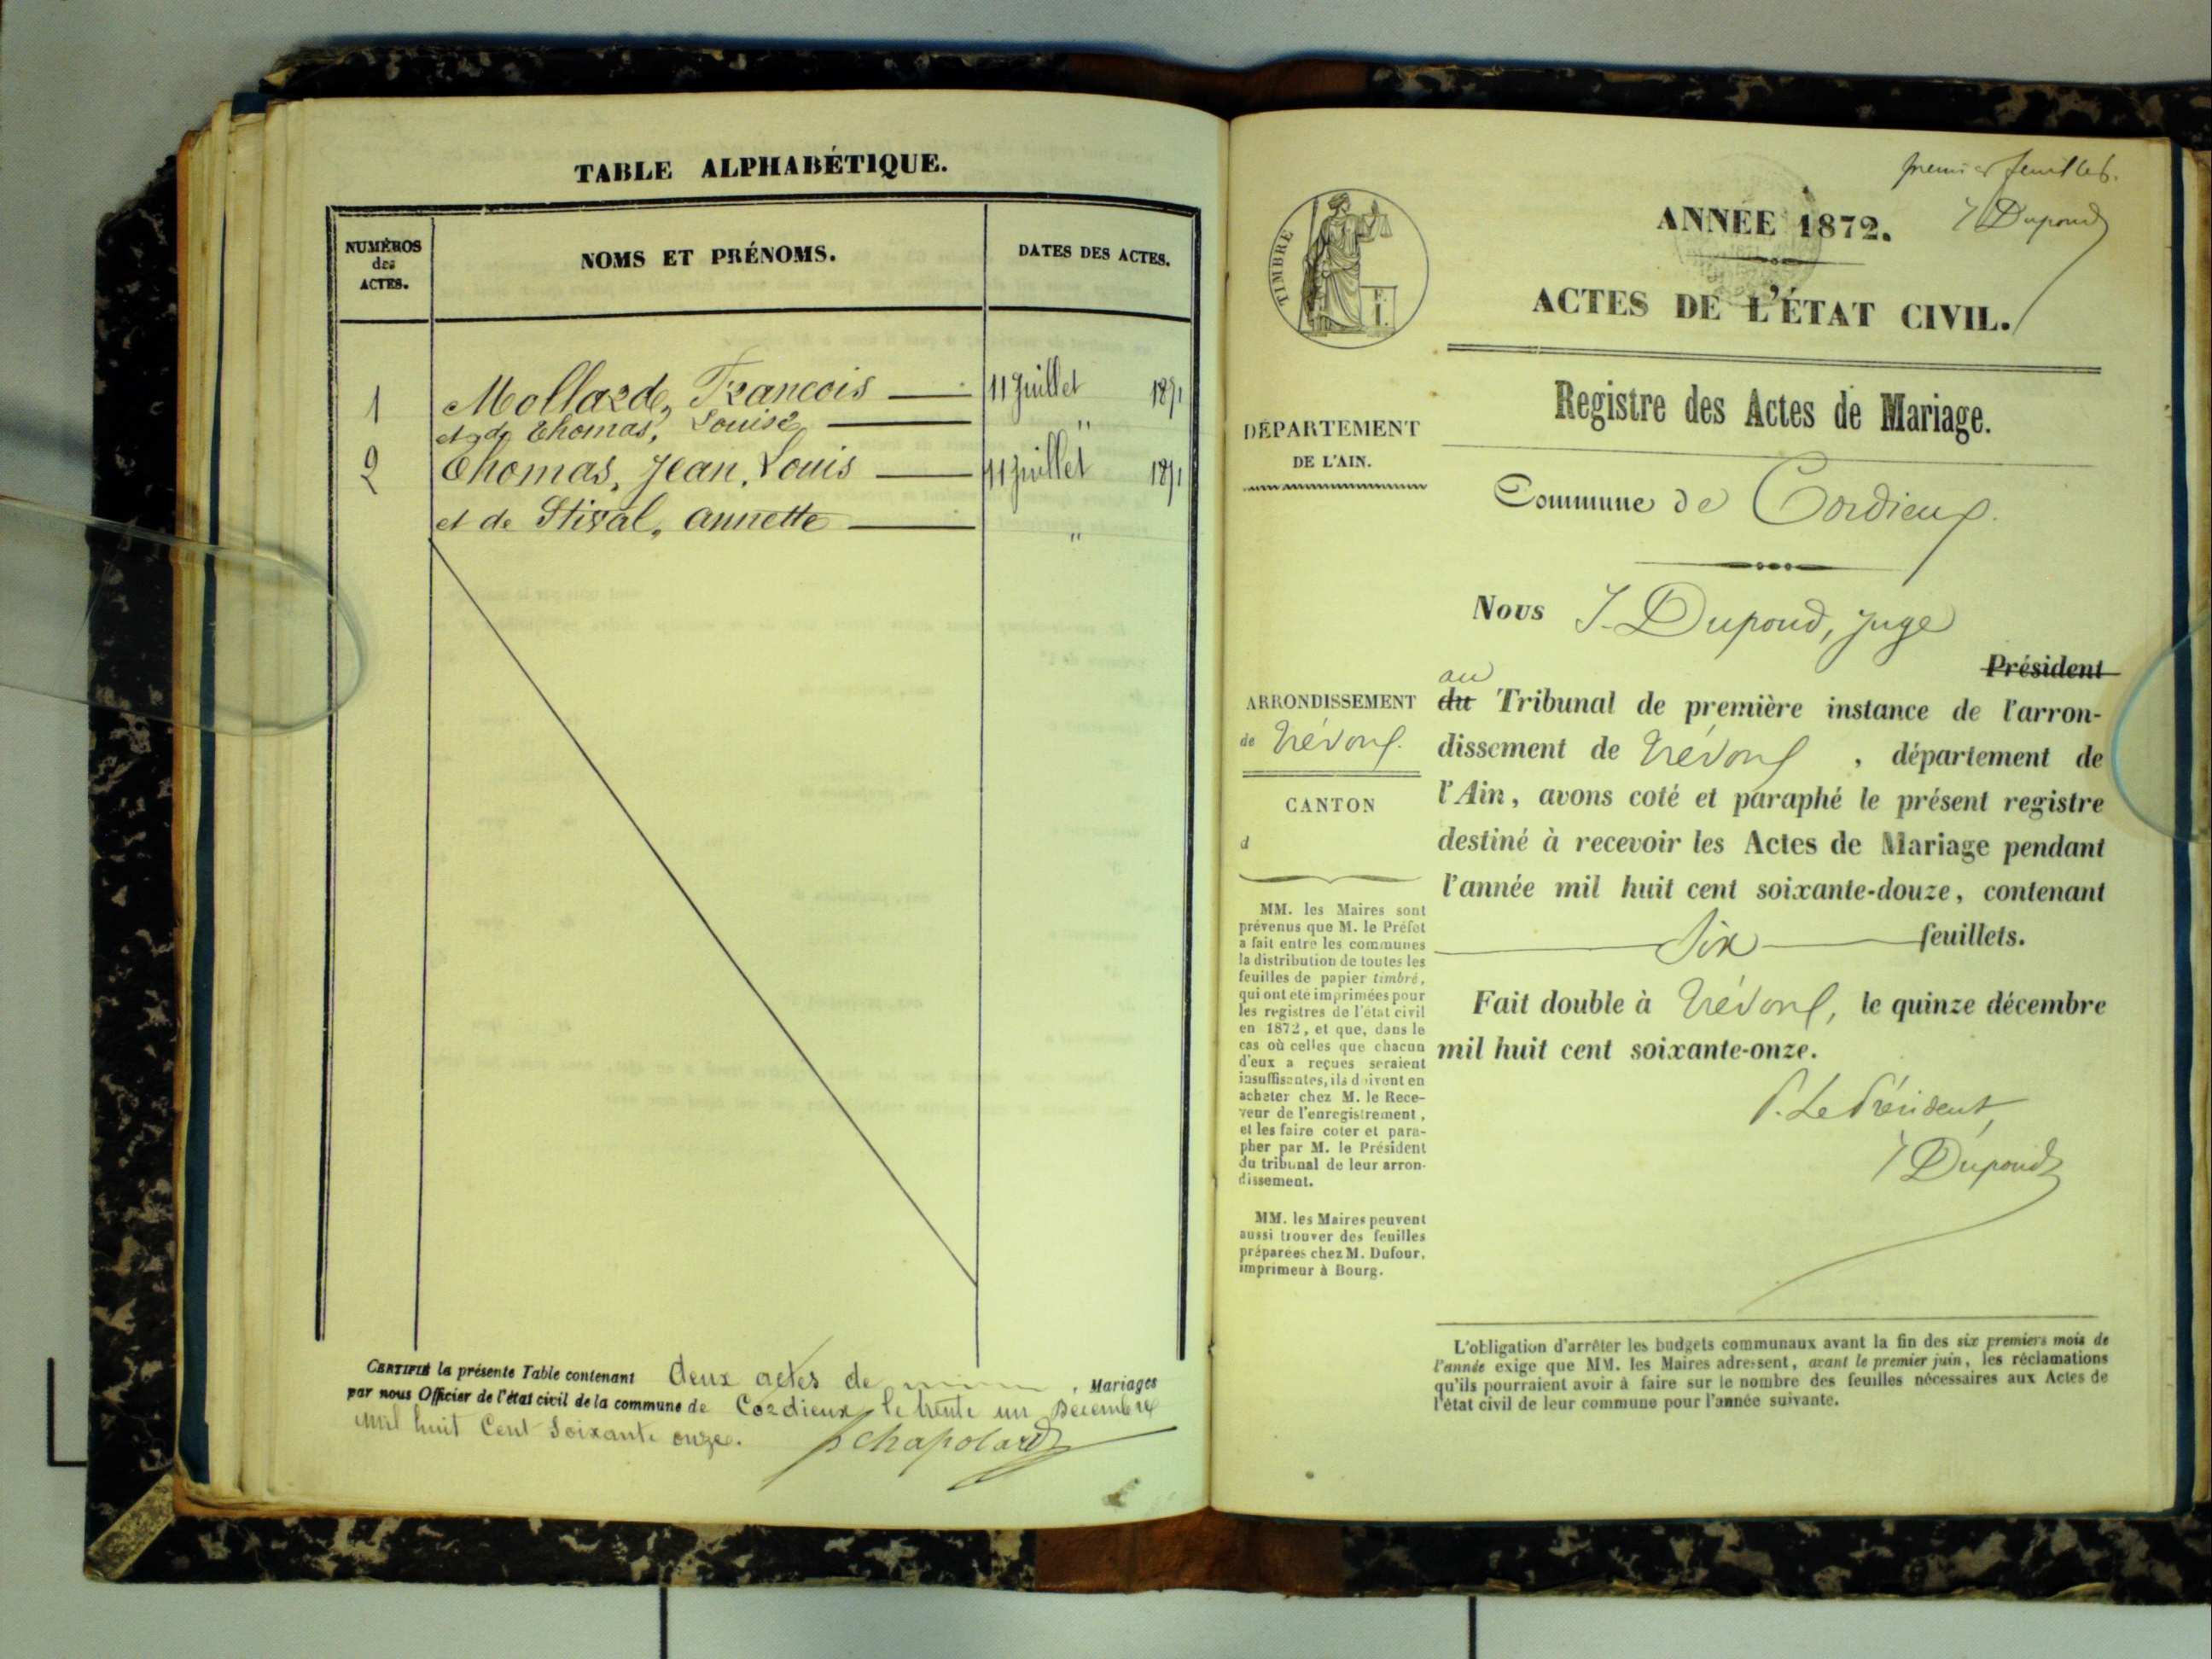 TABLE ALPHABÉTIQUE.
NUMÉROS
des
ACTES.
NOMS ET PRÉNOMS.
DATES DES ACTES.
1 Mollard, Francois 11 Juillet 1871
et de Thomas, Louise "
2 Thomas, Jean, Louis 11 Juillet 1871
et de Stival, annette "
CERTIFIÉ la présente Table contenant deux actes de , Mariages
par nous Officier de l'état civil de la commune de Cordieux le trente un Décembre
mil huit Cent Soixante onze. Chapolard
premier feuillet.
J Dupond
TIMBRE
ANNÉE 1872.
ACTES DE L'ÉTAT CIVIL.
Registre des Actes de Mariage.
DÉPARTEMENT
DE L'AIN.
Commune de Cordieux.
Nous J. Dupond, juge
Président
au
ARRONDISSEMENT
de Trévoux.
CANTON
d
MM. les Maires sont
prévenus que M. le Préfet
a fait entre les communes
la distribution de toutes les
feuilles de papier timbré,
qui ont été imprimées pour
les registres de l'état civil
en 1872, et que, dans le
cas où celles que chacun
d'eux a reçues seraient
insuffisantes, ils doivent en
acheter chez M. le Rece-
veur de l'enregistrement,
et les faire coter et para-
pher par M. le Président
du tribunal de leur arron-
dissement.
MM. les Maires peuvent
aussi trouver des feuilles
préparées chez M. Dufour,
imprimeur à Bourg.
du Tribunal de première instance de l'arron-
dissement de Trévoux , département de
l'Ain, avons coté et paraphé le présent registre
destiné à recevoir les Actes de Mariage pendant
l'année mil huit cent soixante-douze, contenant
Six feuillets.
Fait double à Trévoux, le quinze décembre
mil huit cent soixante-onze.
P. Le Président,
J Dupond
L'obligation d'arrêter les budgets communaux avant la fin des six premiers mois de
l'année exige que MM. les Maires adressent, avant le premier juin, les réclamations
qu'ils pourraient avoir à faire sur le nombre des feuilles nécessaires aux Actes de
l'état civil de leur commune pour l'année suivante.